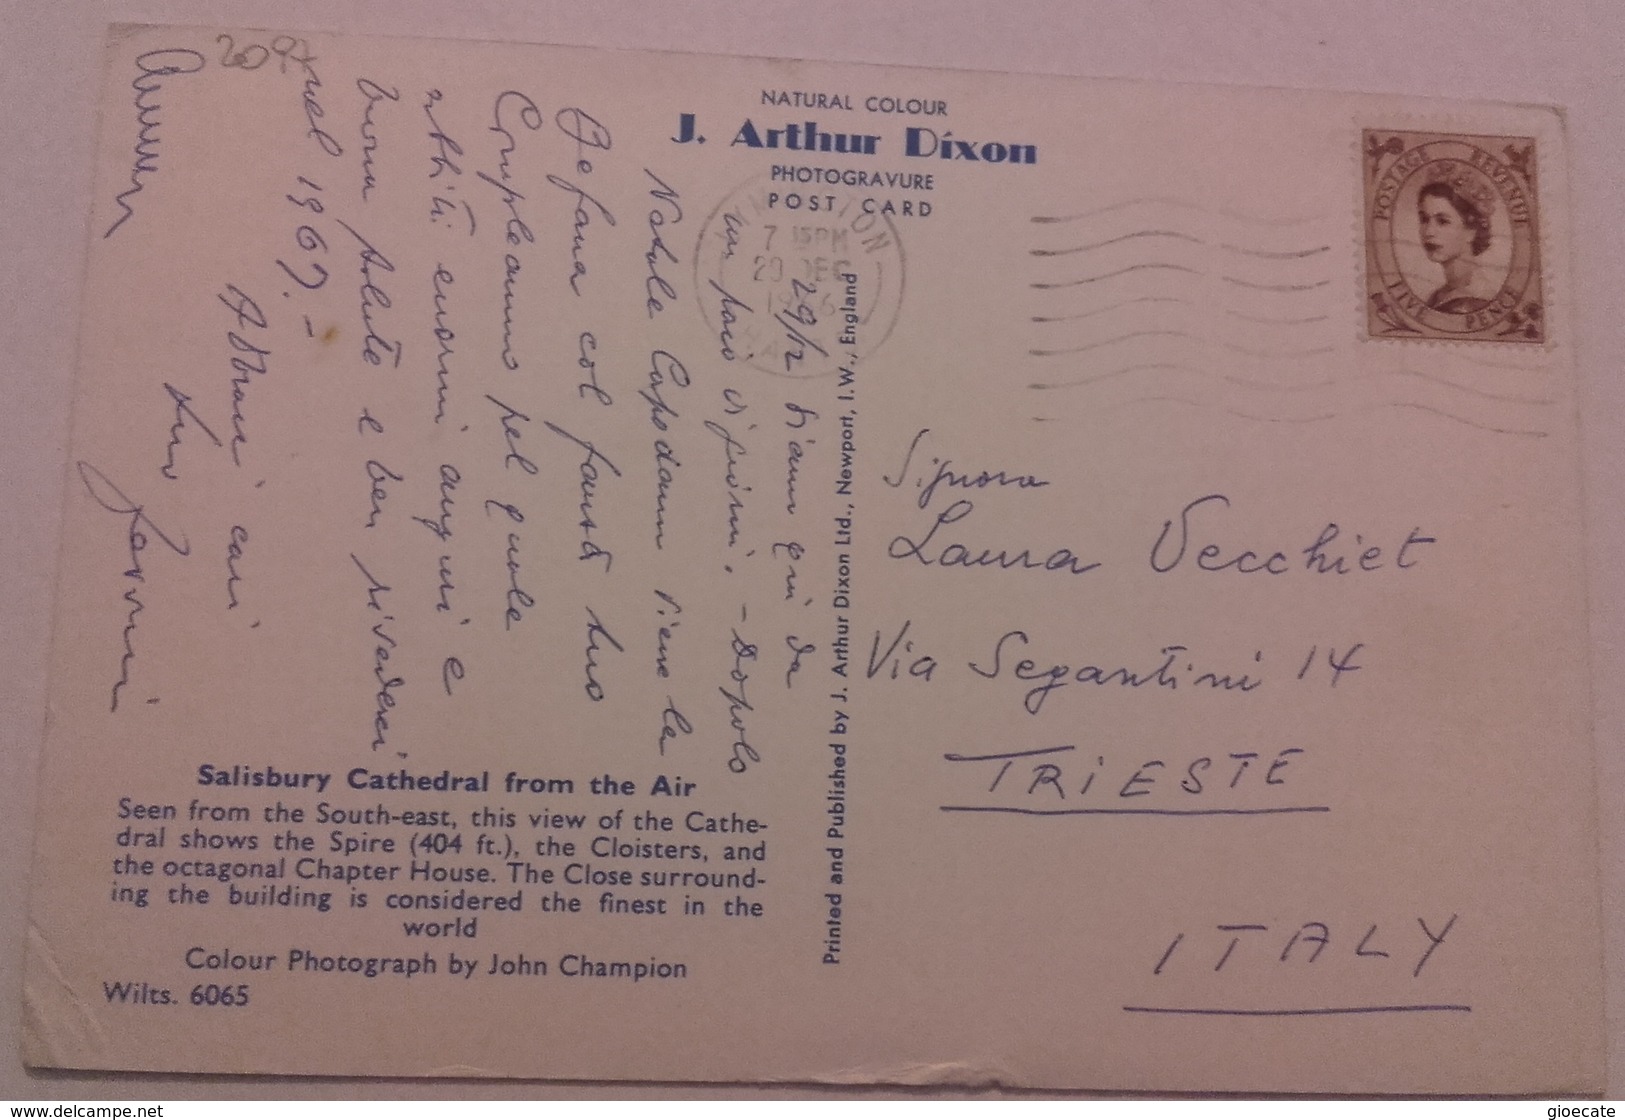 209
NATURAL COLOUR
J. Arthur Dixon
PHOTOGRAVURE
POST CARD
29/12 Siamo qui da
un paio di giorni. - Dopolo
Natale Capodanno viene la
Befana col fausto tuo
Compleanno pel quale
enorni auguri e
buona salute e ben rivederci
nel 1967.-
Abbracci cari
tuo
7 15PM
29 DEC
1966
POSTAGE REVENUE
FIVE PENCE
Printed and Published by J. Arthur Dixon Ltd., Newport, I.W., England
Signora
Laura Vecchiet
Via Segantini 14
TRIESTE
ITALY
Salisbury Cathedral from the Air
Seen from the South-east, this view of the Cathe-
dral shows the Spire (404 ft.), the Cloisters, and
the octagonal Chapter House. The Close surround-
ing the building is considered the finest in the
world
Colour Photograph by John Champion
Wilts. 6065
www.delcampe.net
gioecate